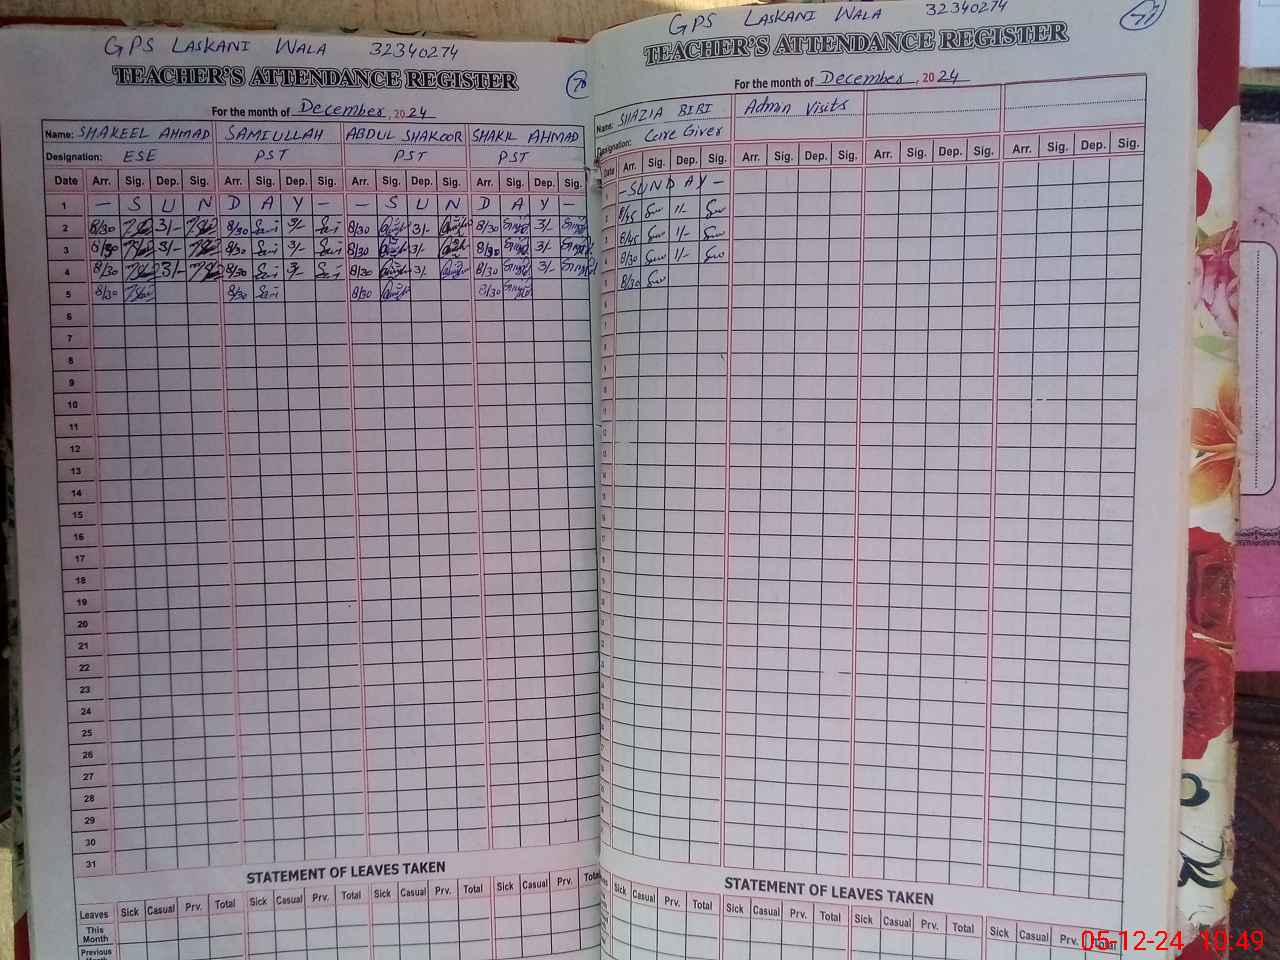 GPS LASKANI WALA 32340274
TEACHER'S ATTENDANCE REGISTER
For the month of December, 2024
Name: SHAKEEL AHMAD SAMIULLAH ABDUL SHAKOOR SHAKIL AHMAD
Designation: ESE PST PST PST
Date Arr. Sig. Dep. Sig. Arr. Sig. Dep. Sig. Arr. Sig. Dep. Sig. Arr. Sig. Dep. Sig.
1 – S U N D A Y – – S U N D A Y –
2 8/30 3/- 8/30 Sami 3/- Sami 8/30 3/- 8/30 3/-
3 8/30 3/- 8/30 Sami 3/- Sami 8/30 3/- 8/30 3/-
4 8/30 3/- 8/30 Sami 3/- Sami 8/30 3/- 8/30 3/-
5 8/30 8/30 Sami 8/30 8/30
6
7
8
9
10
11
12
13
14
15
16
17
18
19
20
21
22
23
24
25
26
27
28
29
30
31
STATEMENT OF LEAVES TAKEN
Leaves Sick Casual Prv. Total Sick Casual Prv. Total Sick Casual Prv. Total Sick Casual Prv. Total
This Month
Previous
GPS LASKANI WALA 32340274
77
TEACHER'S ATTENDANCE REGISTER
For the month of December, 2024
Name: SHAZIA BIBI Admin Visits
Designation: Care Giver
Arr. Sig. Dep. Sig. Arr. Sig. Dep. Sig. Arr. Sig. Dep. Sig. Arr. Sig. Dep. Sig.
– S U N D A Y –
8/45 1/-
8/45 1/-
8/30 1/-
8/30
STATEMENT OF LEAVES TAKEN
Sick Casual Prv. Total Sick Casual Prv. Total Sick Casual Prv. Total Sick Casual Prv. Total
05-12-24 10:49